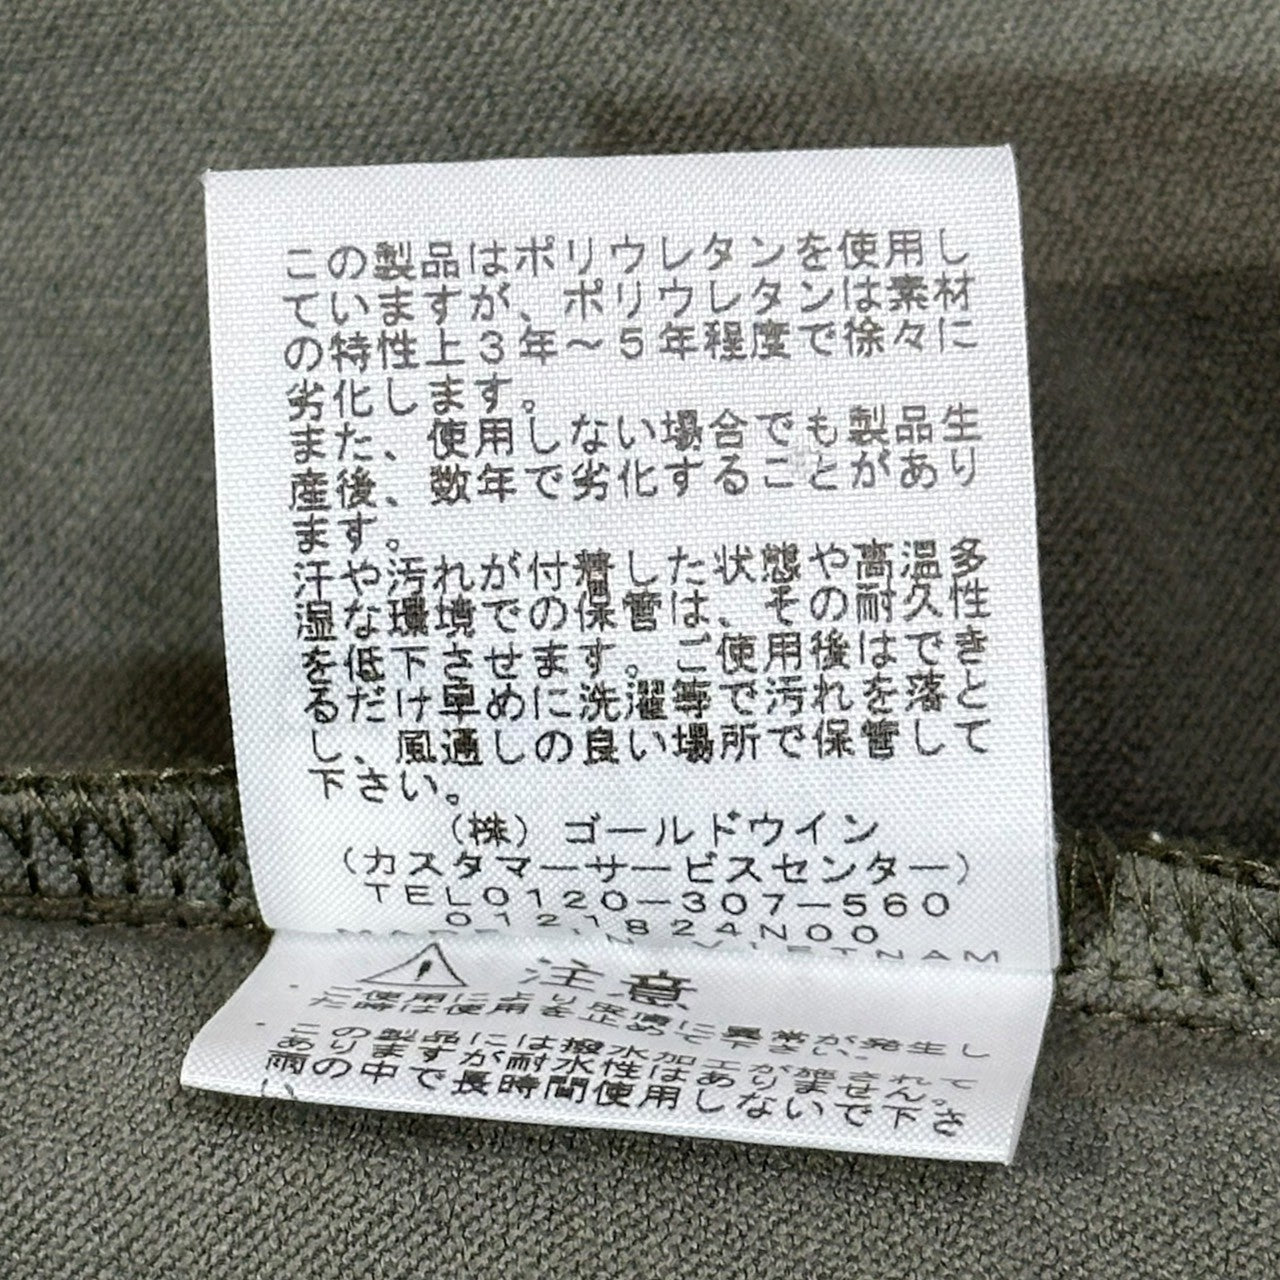 この製品はポリウレタンを使用し
ていますが、ポリウレタンは素材
の特性上3年～5年程度で徐々に
劣化します。
また、使用しない場合でも製品生
産後、数年で劣化することがあり
ます。
汗や汚れが付着した状態や高温多
湿な環境での保管は、その耐久性
を低下させます。ご使用後はでき
るだけ早めに洗濯等で汚れを落と
し、風通しの良い場所で保管して
下さい。
（株）ゴールドウイン
（カスタマーサービスセンター）
TEL0120-307-560
0121824N00
MADE IN VIETNAM
注意
・ご使用により皮膚に異常が発生し
た時は使用を止めて下さい。
・この製品には撥水加工が施されて
ありますが耐水性はありません。
雨の中で長時間使用しないで下さ
い